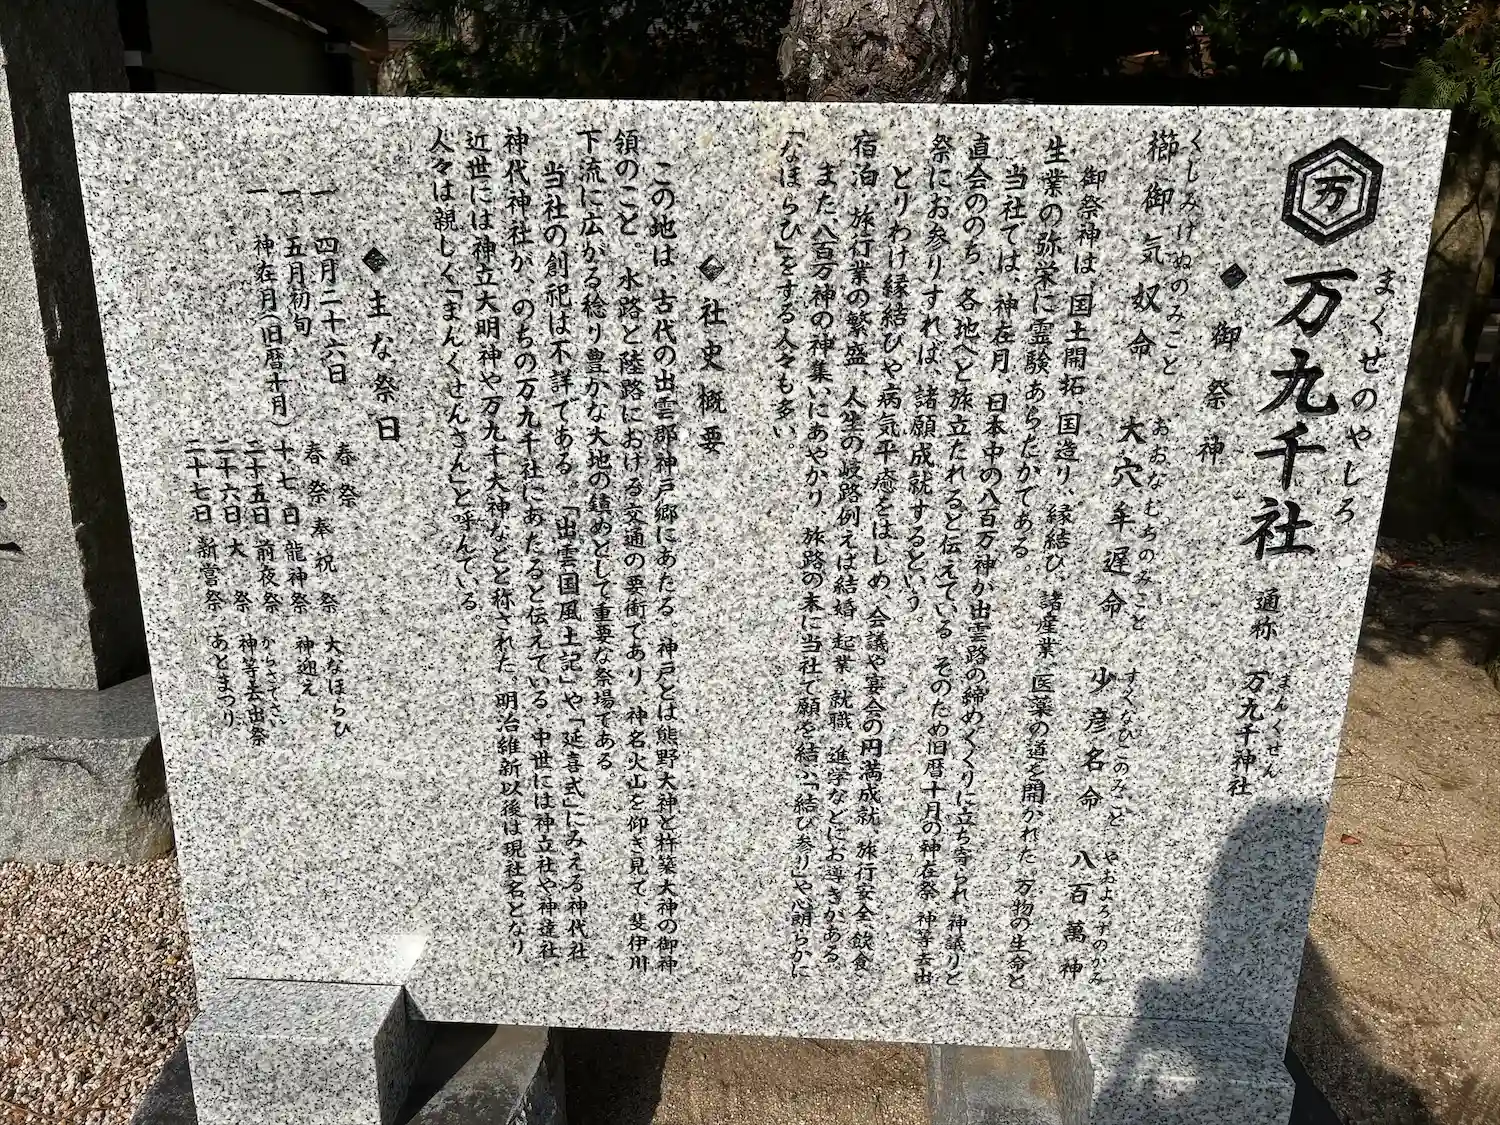 万
まくせのやしろ
万九千社 通称 万九千神社
まんくせん
御祭神
くしみけぬのみこと おおなむちのみこと すくなひこのみこと やおよろずのかみ
櫛御気奴命 大穴牟遅命 少彦名命 八百萬神
御祭神は、国土開拓、国造り、縁結び、諸産業、医薬の道を開かれた、万物の生命と
生業の弥栄に霊験あらたかである。
当社では、神在月、日本中の八百万神が出雲路の締めくくりに立ち寄られ、神議りと
直会ののち、各地へと旅立たれると伝えている。そのため旧暦十月の神在祭、神等去出
祭にお参りすれば、諸願成就するという。
とりわけ縁結びや病気平癒をはじめ、会議や宴会の円満成就、旅行安全、飲食、
宿泊、旅行業の繁盛、人生の岐路例えば結婚、起業、就職、進学などにお導きがある。
また八百万神の神集いにあやかり、旅路の末に当社で願を結ぶ「結び参り」や心朗らかに
「なほらひ」をする人々も多い。
社史概要
この地は、古代の出雲郡神戸郷にあたる。神戸とは熊野大神と杵築大神の御神
領のこと。水路と陸路における交通の要衝であり、神名火山を仰ぎ見て、斐伊川
下流に広がる稔り豊かな大地の鎮めとして重要な祭場である。
当社の創祀は不詳である。「出雲国風土記」や「延喜式」にみえる神代社、
神代神社が、のちの万九千社にあたると伝えている。中世には神立社や神達社、
近世には神立大明神や万九千大神などと称された。明治維新以後は現社名となり、
人々は親しく「まんくせんさん」と呼んでいる。
主な祭日
一 四月二十六日 春祭 大なほらひ
一 五月初旬 春祭奉祝祭
一 神在月(旧暦十月) 十七日 龍神祭 神迎え
からさでさい
二十五日 前夜祭 神等去出祭
二十六日 大祭
二十七日 新嘗祭 あとまつり